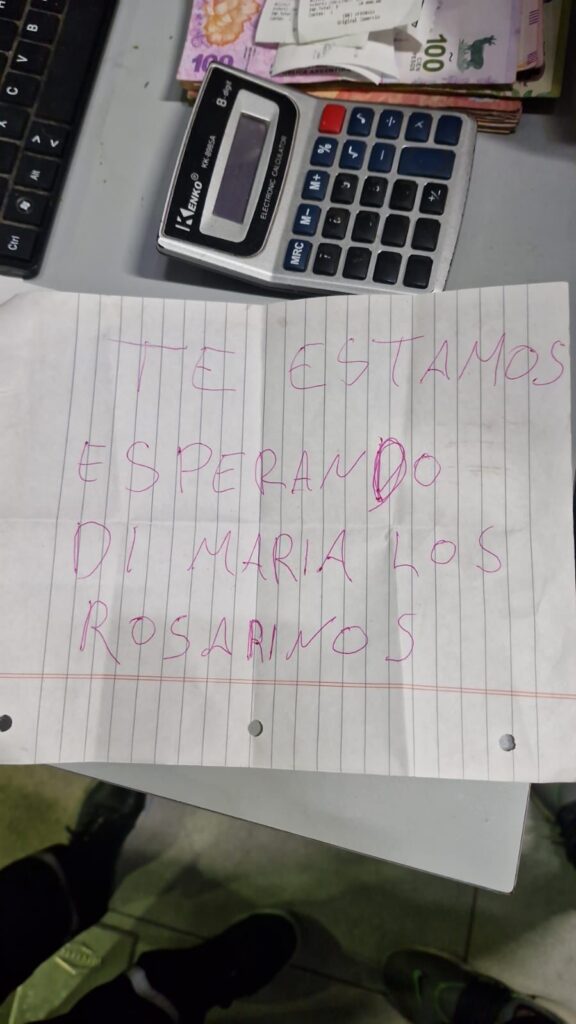 100
100
B
V
C
X
> <
Alt
Ctrl
KENKO®
KK-8985A
8-digit
ELECTRONIC CALCULATOR
√ ÷ ×
% √ −
M+
M−
MRC
+
TE ESTAMOS
ESPERANDO
DI MARIA LOS
ROSARINOS